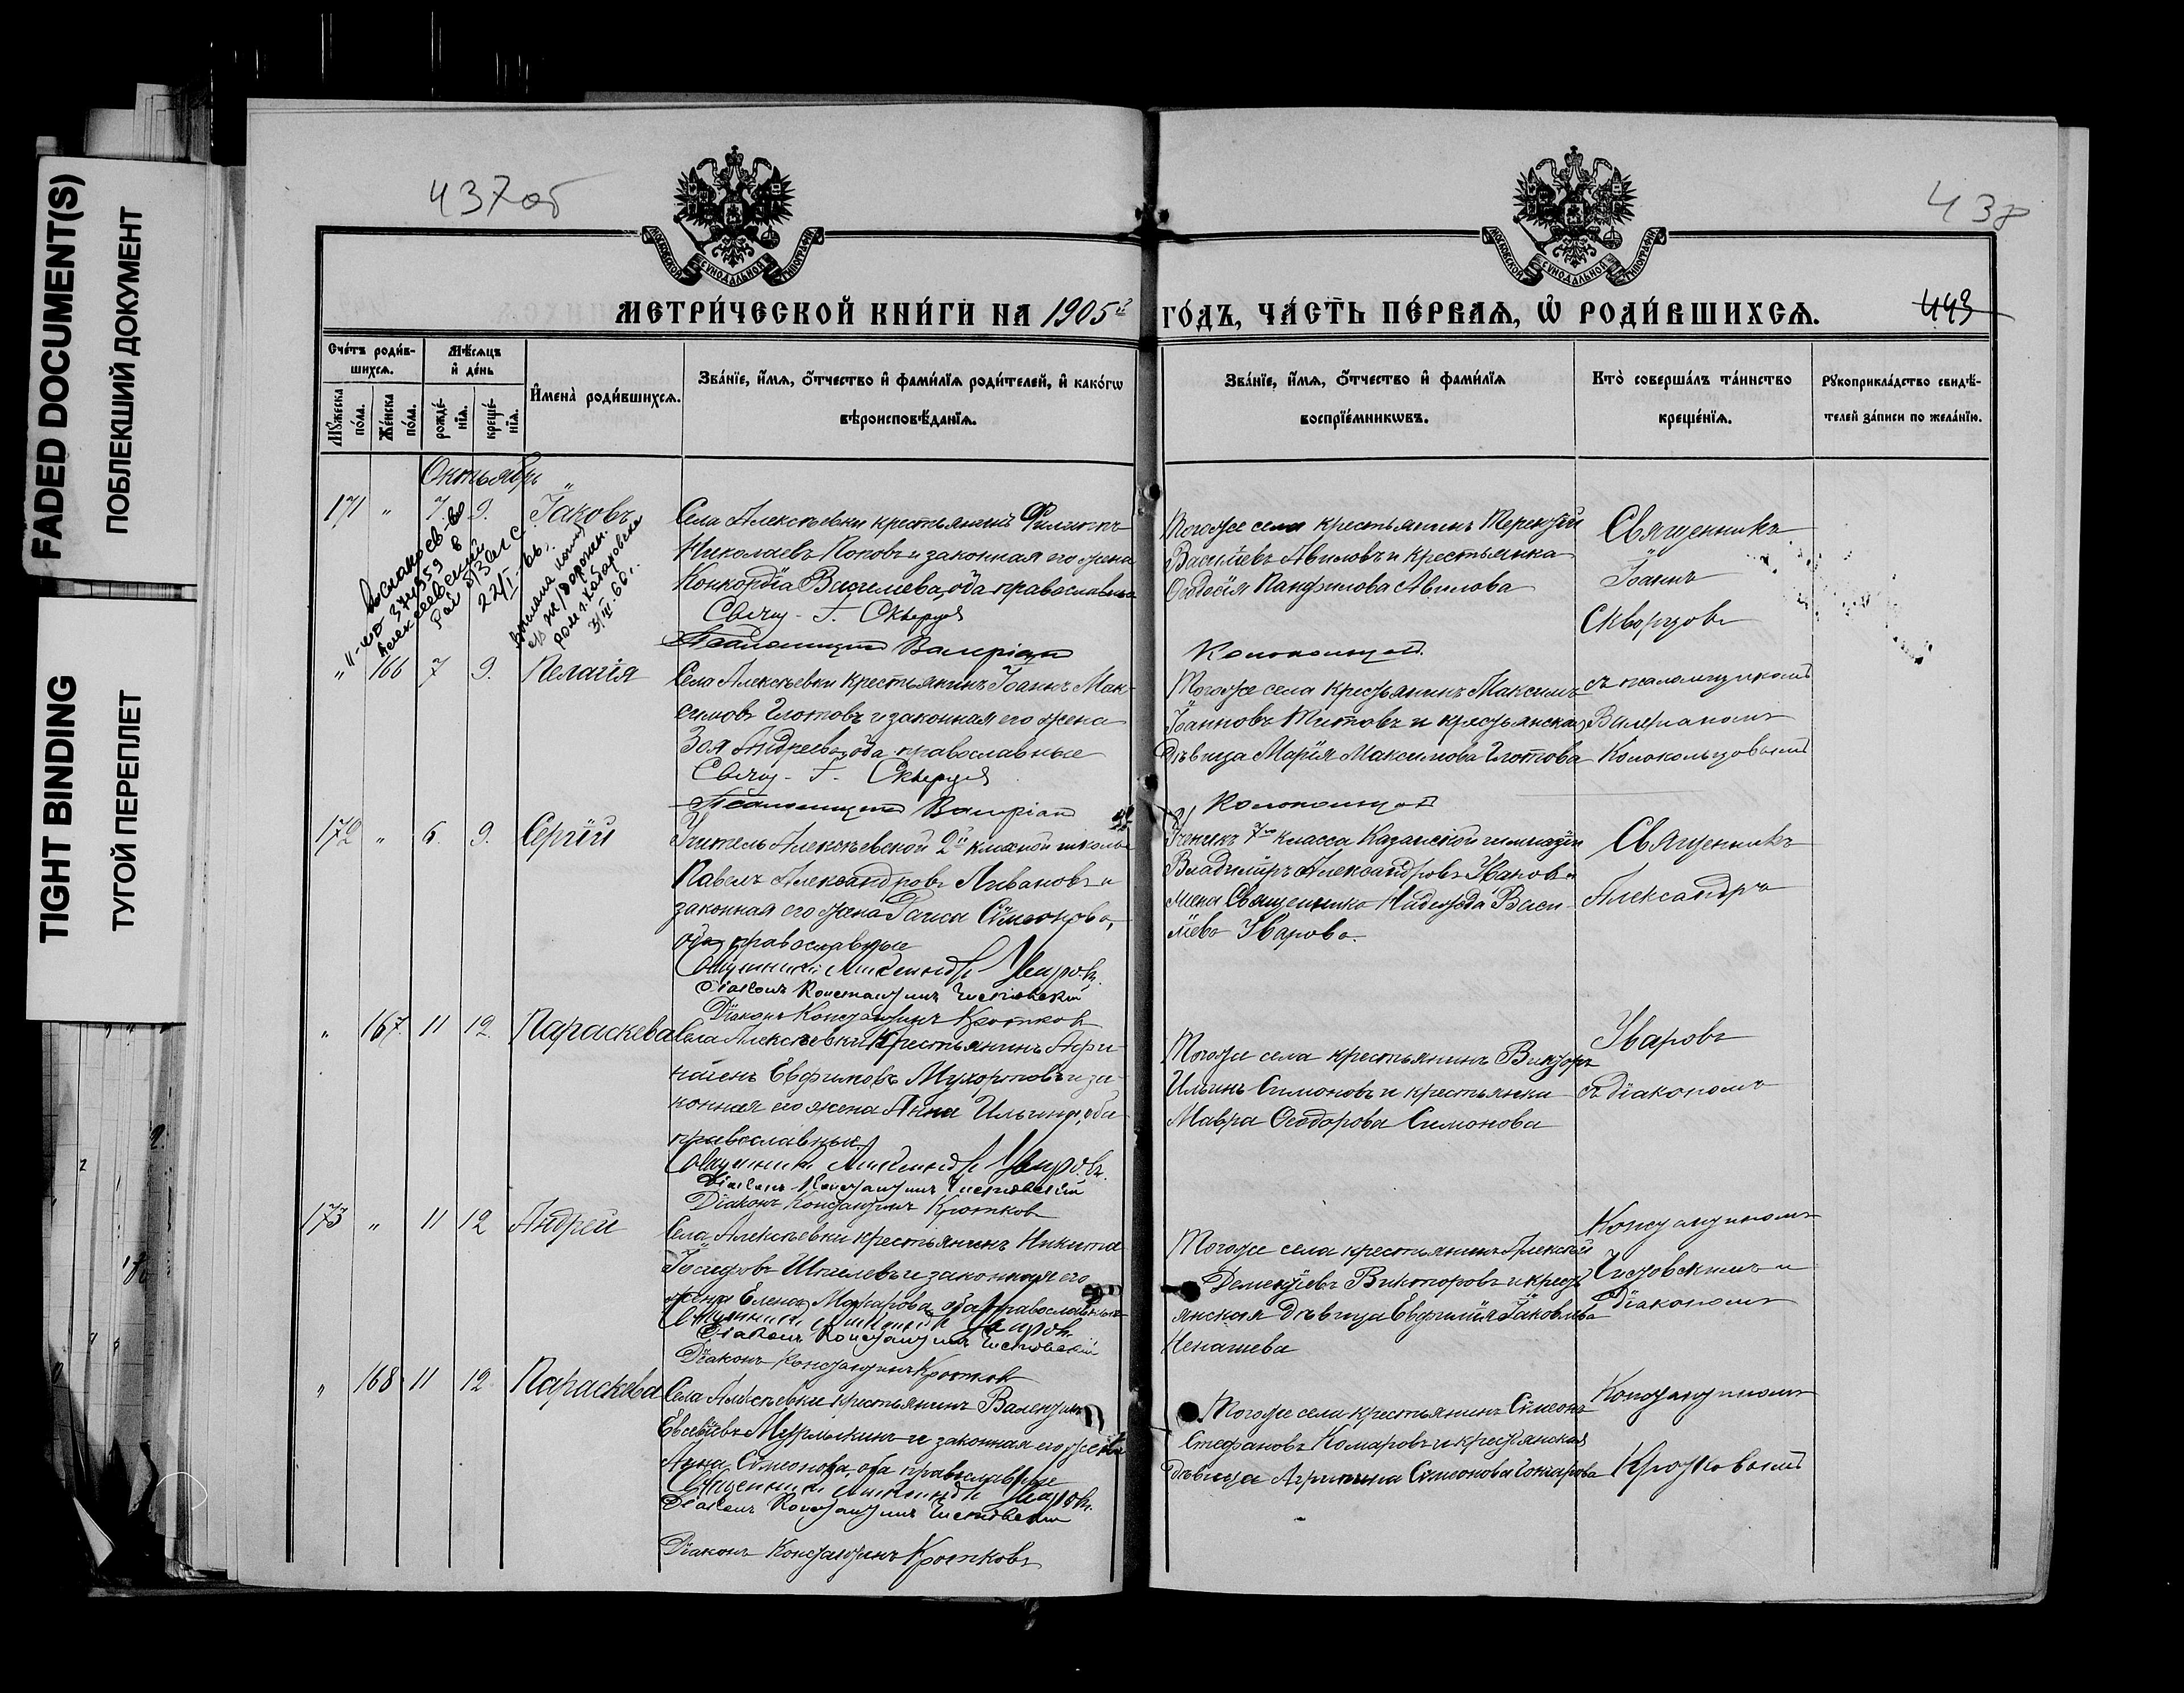 FADED DOCUMENT(S)
ПОБЛЕКШИЙ ДОКУМЕНТ
TIGHT BINDING
ТУГОЙ ПЕРЕПЛЕТ
437об
438
МОСКОВСКОЙ СѴНОДАЛЬНОЙ ТИПОГРАФІИ
МОСКОВСКОЙ СѴНОДАЛЬНОЙ ТИПОГРАФІИ
МЕТРИ́ЧЕСКОЙ КНИ́ГИ НА 1905й ГО́ДЪ, ЧА́СТЬ ПЕ́РВАѦ, Ѡ РОДИ́ВШИХСѦ.
443
Сче́тъ роди́в-
шихсѧ.
Мꙋ́жеска по́ла.
Же́нска по́ла.
Мѣ́сѧцъ и де́нь
рожде́-
нїѧ.
креще́-
нїѧ.
И҆мена̀ роди́вшихсѧ.
Зва́нїе, и҆́мѧ, ѻ҆́тчество и҆ фами́лїѧ роди́телей, и҆ како́гѡ
вѣроисповѣ́данїѧ.
Зва́нїе, и҆́мѧ, ѻ҆́тчество и҆ фами́лїѧ
воспрїе́мникѡвъ.
Кто̀ соверша́лъ та́инство
креще́нїѧ.
Рꙋкоприкла́дство свидѣ́-
телей за́писи по жела́нїю.
Октябрь
171 " 7 9. Іаковъ
Села Алексѣевки крестьянинъ Филиппъ
Николаевъ Поповъ и законная его жена
Конкордія, оба православные
Свящ. І. Скворцов
Псаломщикъ Валеріанъ Колокольцовъ
Тогоже села крестьянинъ Терентій
Василіевъ Авиловъ и крестьянка
Ѳеодосія Панфилова Авилова
Священникъ
Іоаннъ
Скворцовъ
22/I-66
3/III-66 г.
" 166 7 9. Пелагія
Села Алексѣевки крестьянинъ Іоаннъ Мак-
симовъ Глотовъ и законная его жена
Зоя Андреева, оба православные
Свящ. І. Скворцов
Псаломщикъ Валеріанъ Колокольцовъ
Тогоже села крестьянинъ Максимъ
Іоанновъ Титовъ и крестьянская
дѣвица Марія Максимова Глотова
съ псаломщикомъ
Валеріаномъ
Колокольцовымъ
172 " 6. 9. Сергій
Учитель Алексѣевской 2й классной школы
Павелъ Александровъ Ливановъ и
законная его жена Раиса Симеонова,
оба православные
Священникъ Александръ Уваровъ.
Діаконъ Константинъ Чистовскій
Діаконъ Константинъ Кротковъ
Ученикъ 7го класса Казанской гимназіи
Владиміръ Александровъ Ивановъ и
жена Священника Надежда Васи-
ліева Уварова.
Священникъ
Александръ
" 167 11 12. Параскева
Села Алексѣевки Крестьянинъ
Евфимовъ Мухортовъ и за-
конная его жена Анна Ильина, оба
православные
Священникъ Александръ Уваровъ.
Діаконъ Константинъ Чистовскій
Діаконъ Константинъ Кротковъ
Тогоже села крестьянинъ Викторъ
Ильинъ Симоновъ и крестьянка
Мавра Ѳеодорова Симонова
Уваровъ
съ діакономъ
173 " 11 12 Андрей
Села Алексѣевки крестьянинъ Никита
Іосифовъ Шмелевъ и законная его
жена Елена Макарова, оба православные
Священникъ Александръ Уваровъ.
Діаконъ Константинъ Чистовскій
Діаконъ Константинъ Кротковъ
Тогоже села крестьянинъ Алексѣй
Дементіевъ Викторовъ и кресть-
янская дѣвица Евфимія Іаковлева
Ненашева
Константиномъ
Чистовскимъ и
Діакономъ
" 168 11 12. Параскева
Села Алексѣевки крестьянинъ Валентинъ
Евсевіевъ и законная его жена
Анна Симеонова, оба православные
Священникъ Александръ Уваровъ.
Діаконъ Константинъ Чистовскій
Діаконъ Константинъ Кротковъ
Тогоже села крестьянинъ Симеонъ
Стефановъ Комаровъ и крестьянская
дѣвица Агрипина Симеонова Гончарова
Константиномъ
Кротковымъ